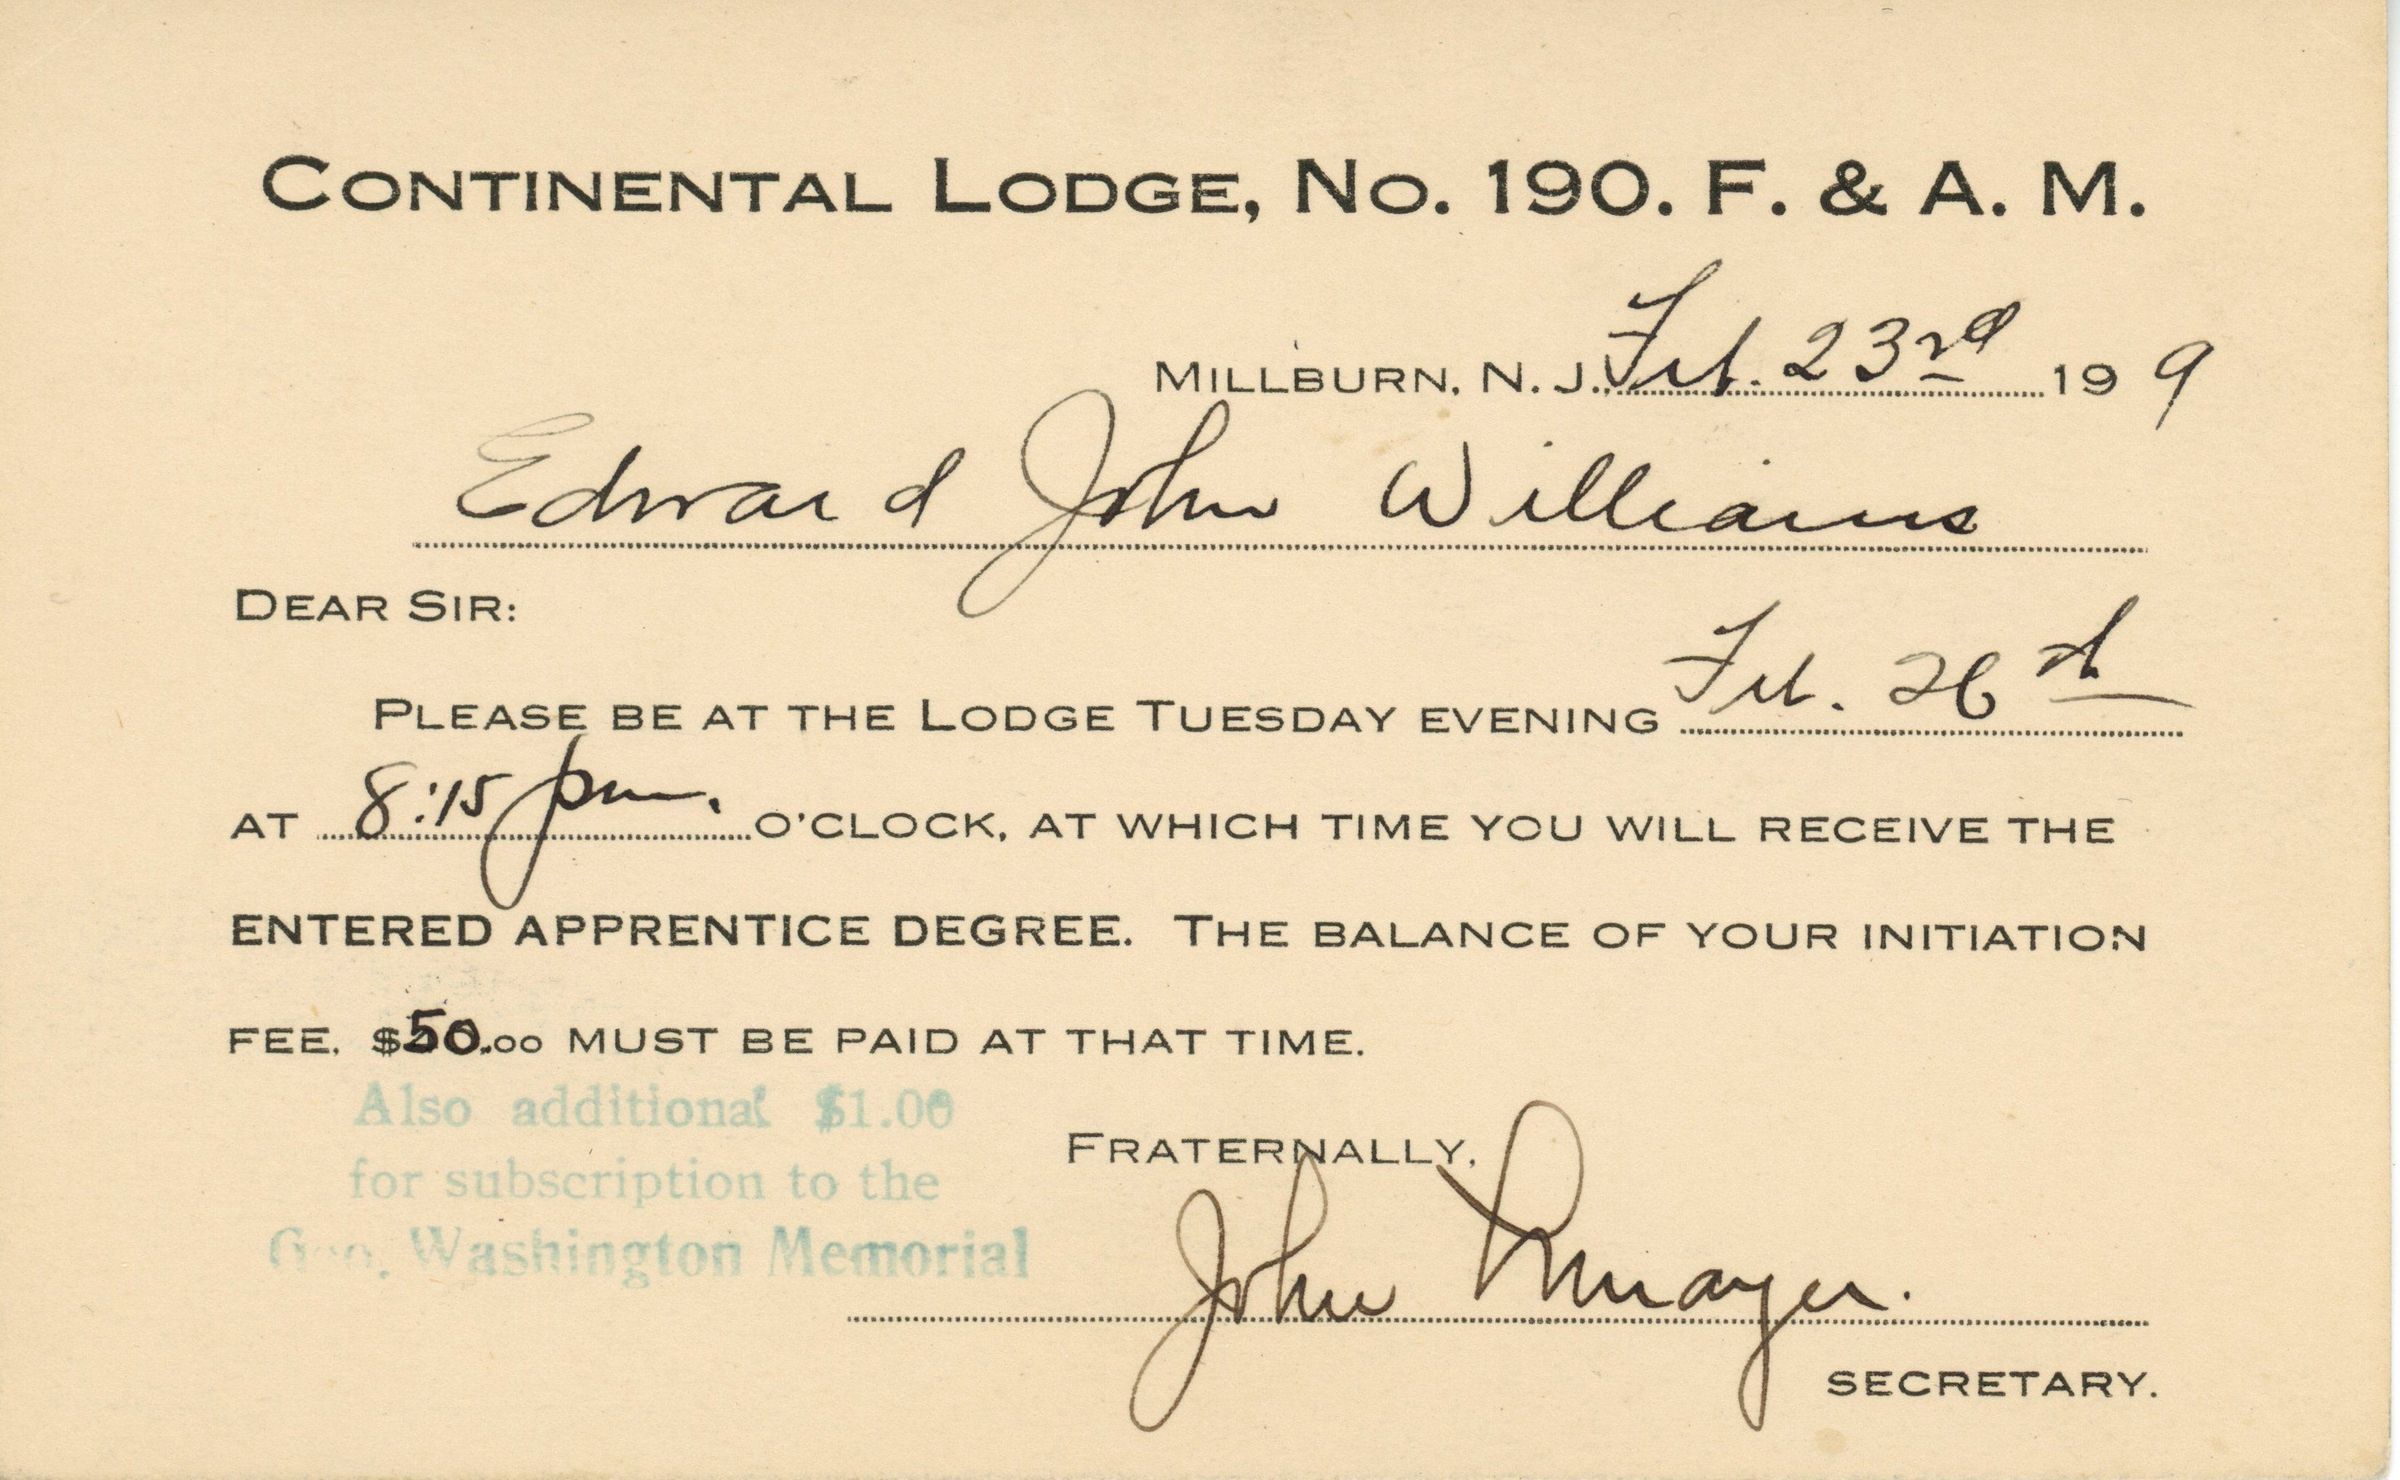 CONTINENTAL LODGE, NO. 190. F. & A. M.
MILLBURN, N. J., Feb. 23rd 19 9
Edward John Williams
DEAR SIR:
PLEASE BE AT THE LODGE TUESDAY EVENING Feb. 26th
AT 8:15 pm. O'CLOCK, AT WHICH TIME YOU WILL RECEIVE THE
ENTERED APPRENTICE DEGREE. THE BALANCE OF YOUR INITIATION
FEE, $50.00 MUST BE PAID AT THAT TIME.
Also additional $1.00
for subscription to the
Geo. Washington Memorial
FRATERNALLY,
John
SECRETARY.